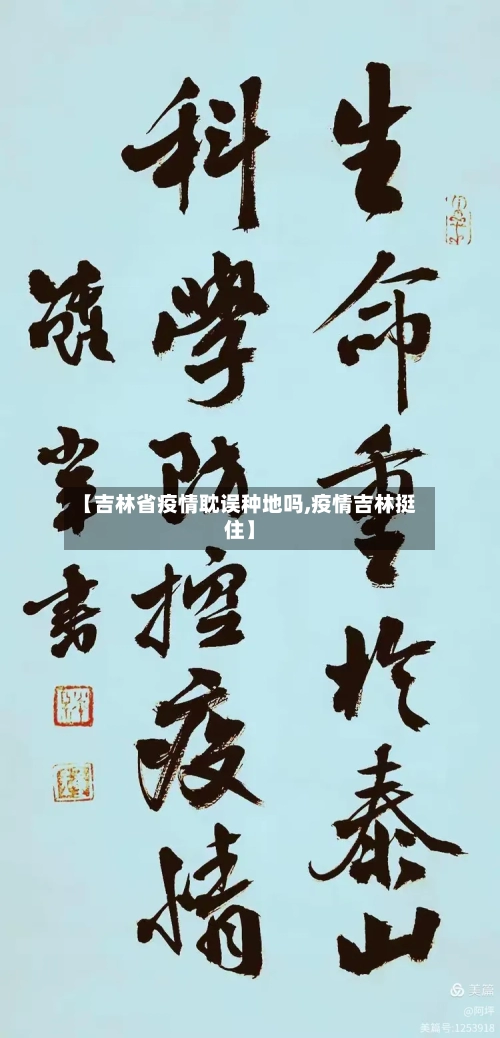 生命重於泰山
科學防控疫情
書
【吉林省疫情耽误种地吗,疫情吉林挺
住】
美篇
@阿坪
美篇号:1253918